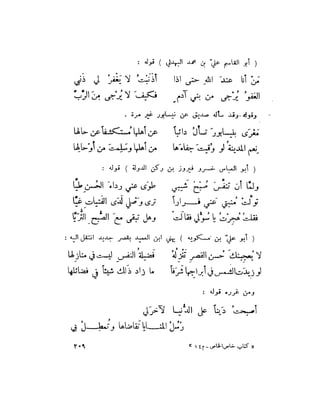 ( أبو القاسم عليّ بن محمد البهدلي ) قوله :
مَنْ أنا عندَ اللهِ حتى اذا أذنَبْتُ لا يَغْفِرُ لي ذَنْبي
العَفْوُ يُرْجى من بني آدمٍ فكيفَ لا يُرْجى مِنَ الرَّبِّ
وقوله وقد سأله صديق عن نيسابور غير مرة .
بنيسابورَ تسألُ دائباً عن أهلِها مُستكشفاً عن حالها
نِعمَ المدينةُ لو وُقيتَ جفاءَها من أهلِها وسَلِمتَ من أوحالها
( أبو العباس خسرو فيروز بن ركن الدولة ) قوله :
ولمَّا أن تنفَّسَ صُبْحُ شيبي طوى عني رداءَ الحُسنِ طيَّا
تولَّتْ مُنيتي عني فراراً ترى وصْلي لَدَى الفَتَيات غَيَّا
فقلتُ هجرْتِ يا سُؤْلي فقالتْ وهل تبقى مع الصُّبحِ الثُّريَّا
( أبو عليّ بن مسكويه ) يهني ابن العميد بقصر جديد انتقل اليه :
لا يُعجِبنكَ حُسنُ القصرِ تنْزِلُهُ فَضيلةُ الشمسِ ليستْ في منازلها
لو زيدَتِ الشمسُ في أبراجِها شرَفاً ما زاد ذلكَ شيئاً في فضائلها
ومن غرره قوله :
أصبحتُ دَيناً على الدُّنيا لآخِرَتي
رُسلُ المنايا تقاضاها وتُمطِلُ بي
« كتاب خاص الخاص - م ١٤ »
٢٠٩